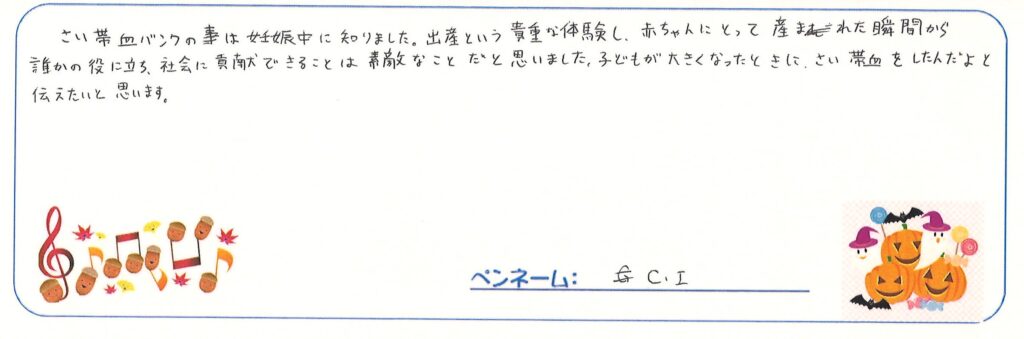 さい帯血バンクの事は妊娠中に知りました。出産という貴重な体験し、赤ちゃんにとって産まれた瞬間から
誰かの役に立ち、社会に貢献できることは素敵なことだと思いました。子どもが大きくなったときに、さい帯血をしたんだよと
伝えたいと思います。
ペンネーム： C.I